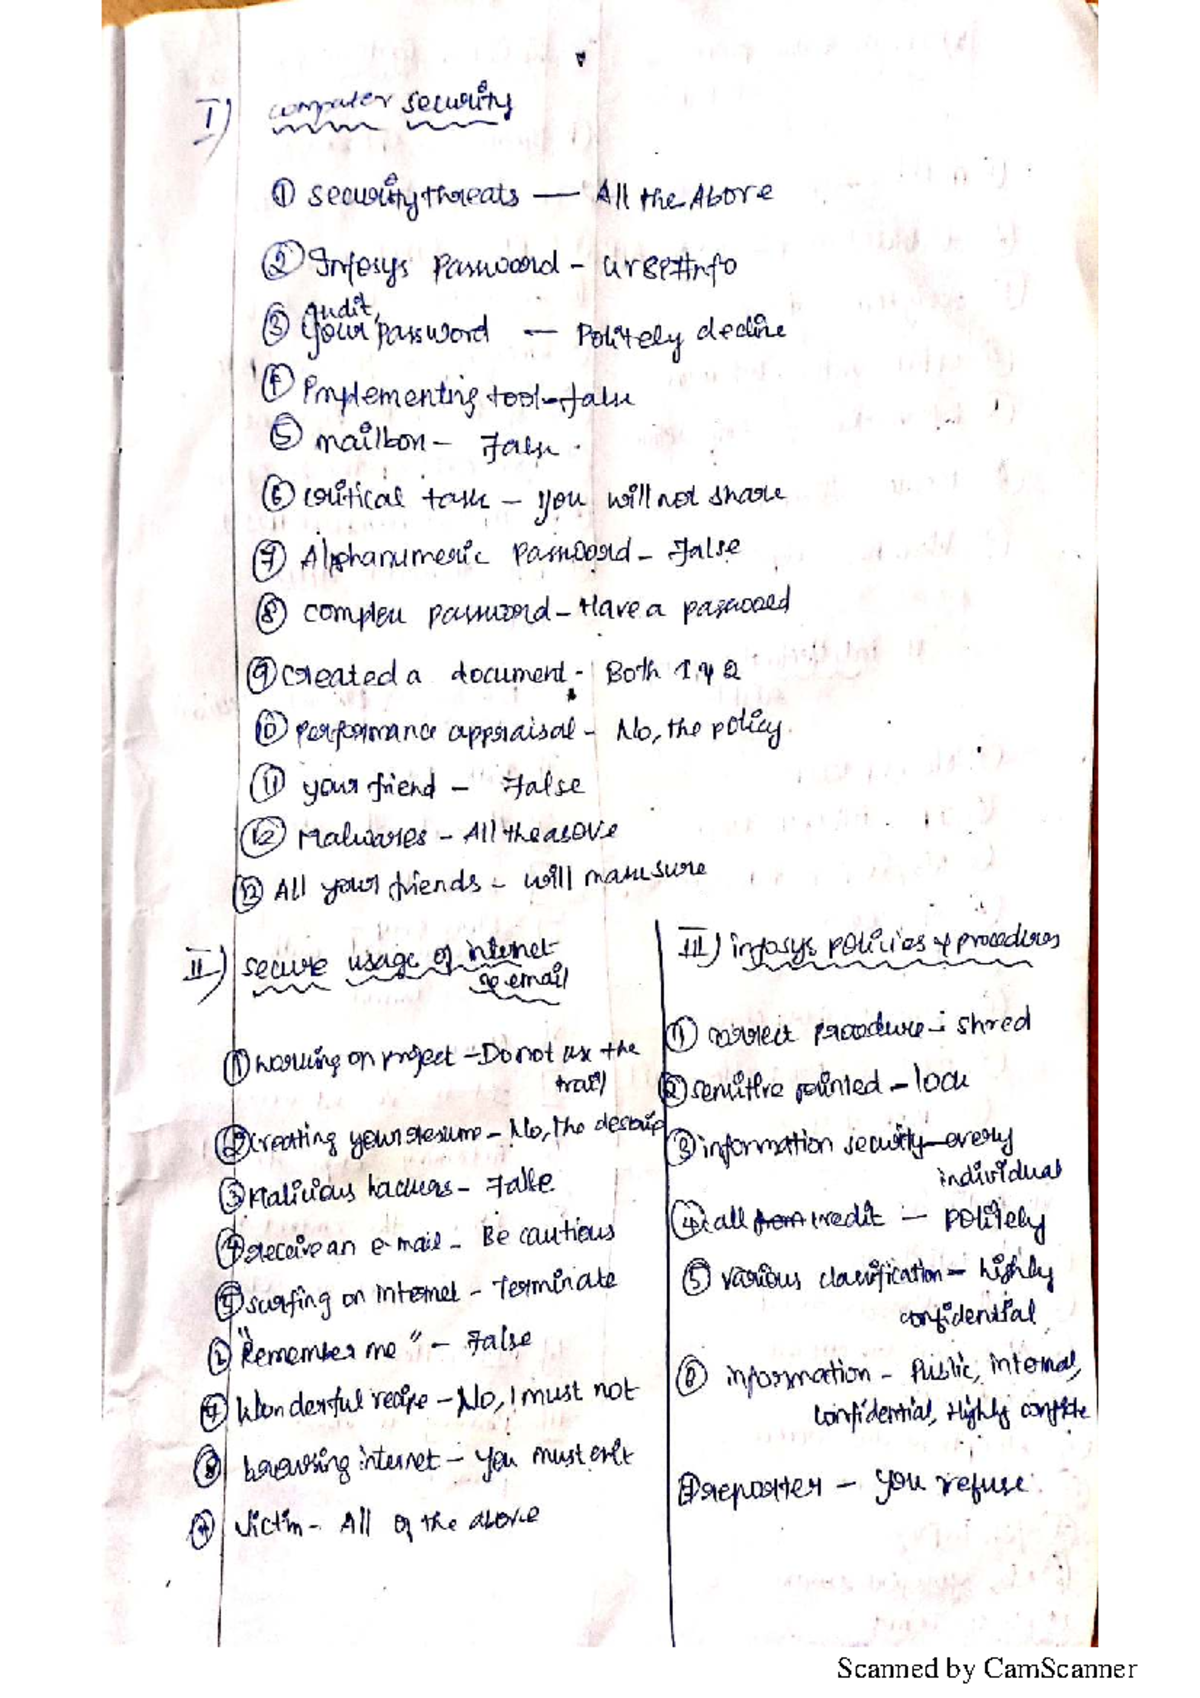 I) computer security
① security threats — All the Above
② Infosys Password - Ur8P#Info
③ Audit, your password — Politely decline
④ Implementing tool - False
⑤ mailbox - False.
⑥ critical task - you will not share
⑦ Alphanumeric password - False
⑧ complex password - Have a password
⑨ created a document - Both 1 & 2
⑩ performance appraisal - No, the policy
⑪ your friend - False
⑫ Malwares - All the above
⑬ All your friends - will make sure
II) secure usage of internet
& email
① working on project - Do not use the
trail
② creating your resume - No, the descrip
③ Malicious hackers - False
④ receive an e-mail - Be cautious
⑤ surfing on internet - Terminate
"Remember me" - False
Wonderful recipe - No, I must not
⑧ browsing internet - you must exit
victim - All of the above
III) infosys policies & procedures
① correct procedure - shred
② sensitive printed - lock
③ information security - every
individual
④ call from credit - politely
⑤ various classification - highly
confidential
⑥ information - Public, internal,
confidential, Highly confide
reporter - you refuse
Scanned by CamScanner